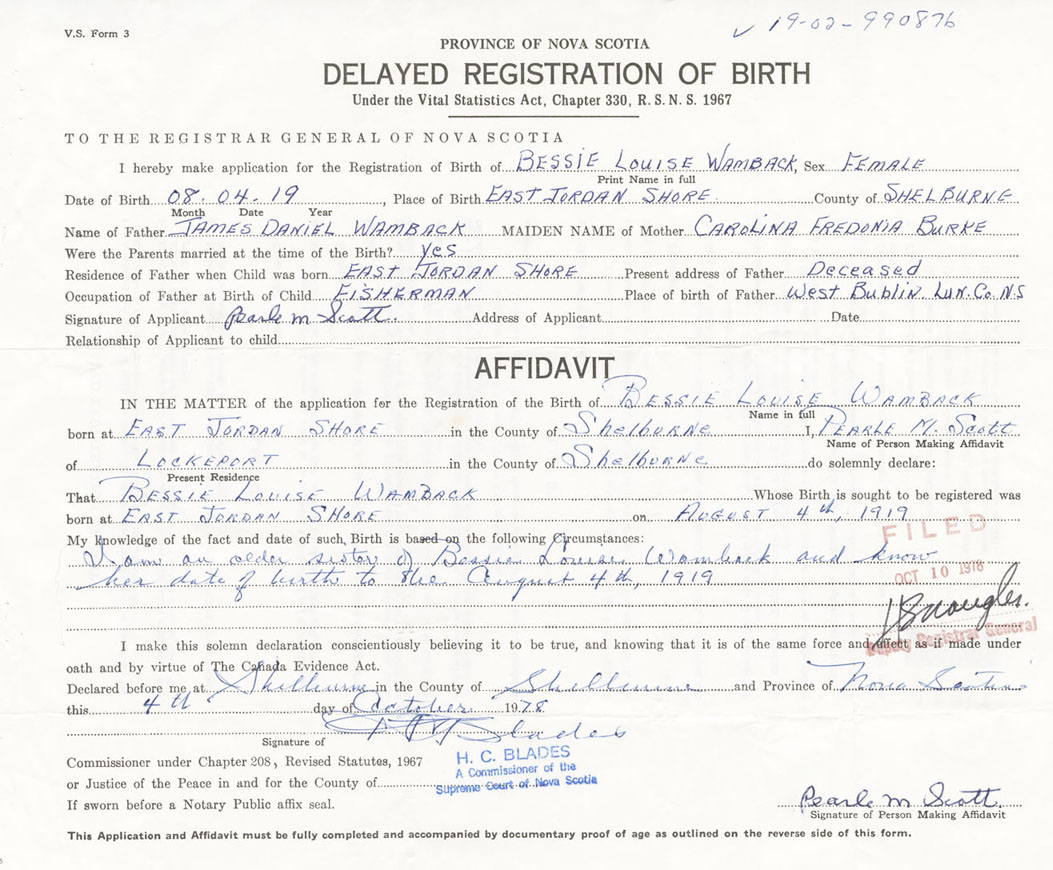 V.S. Form 3
✓ 19-02-990876
PROVINCE OF NOVA SCOTIA
DELAYED REGISTRATION OF BIRTH
Under the Vital Statistics Act, Chapter 330, R. S. N. S. 1967
TO THE REGISTRAR GENERAL OF NOVA SCOTIA
I hereby make application for the Registration of Birth of BESSIE LOUISE WAMBACK, Sex FEMALE
Print Name in full
Date of Birth 08.04.19, Place of Birth EAST JORDAN SHORE County of SHELBURNE
Month Date Year
Name of Father JAMES DANIEL WAMBACK MAIDEN NAME of Mother CAROLINA FREDONIA BURKE
Were the Parents married at the time of the Birth? Yes
Residence of Father when Child was born EAST JORDAN SHORE Present address of Father Deceased
Occupation of Father at Birth of Child FISHERMAN Place of birth of Father West Bublin Lun. Co. N.S
Signature of Applicant Pearle M Scott. Address of Applicant Date
Relationship of Applicant to child
AFFIDAVIT
IN THE MATTER of the application for the Registration of the Birth of BESSIE LOUISE WAMBACK
Name in full
born at EAST JORDAN SHORE in the County of Shelburne I, PEARLE M. Scott
Name of Person Making Affidavit
of LOCKEPORT in the County of Shelburne do solemnly declare:
Present Residence
That BESSIE LOUISE WAMBACK Whose Birth is sought to be registered was
born at EAST JORDAN SHORE on AUGUST 4th, 1919
My knowledge of the fact and date of such Birth is based on the following Circumstances:
I am an older sister of Bessie Louise Wamback and know
her date of birth to the August 4th, 1919
FILED
OCT 10 1978
Deputy Registrar General
I make this solemn declaration conscientiously believing it to be true, and knowing that it is of the same force and effect as if made under
oath and by virtue of The Canada Evidence Act.
Declared before me at Shelburne in the County of Shelburne and Province of Nova Scotia
this 4th day of October 1978
H C Blades
Signature of
Commissioner under Chapter 208, Revised Statutes, 1967
or Justice of the Peace in and for the County of
If sworn before a Notary Public affix seal.
H. C. BLADES
A Commissioner of the
Supreme Court of Nova Scotia
Pearle M Scott.
Signature of Person Making Affidavit
This Application and Affidavit must be fully completed and accompanied by documentary proof of age as outlined on the reverse side of this form.